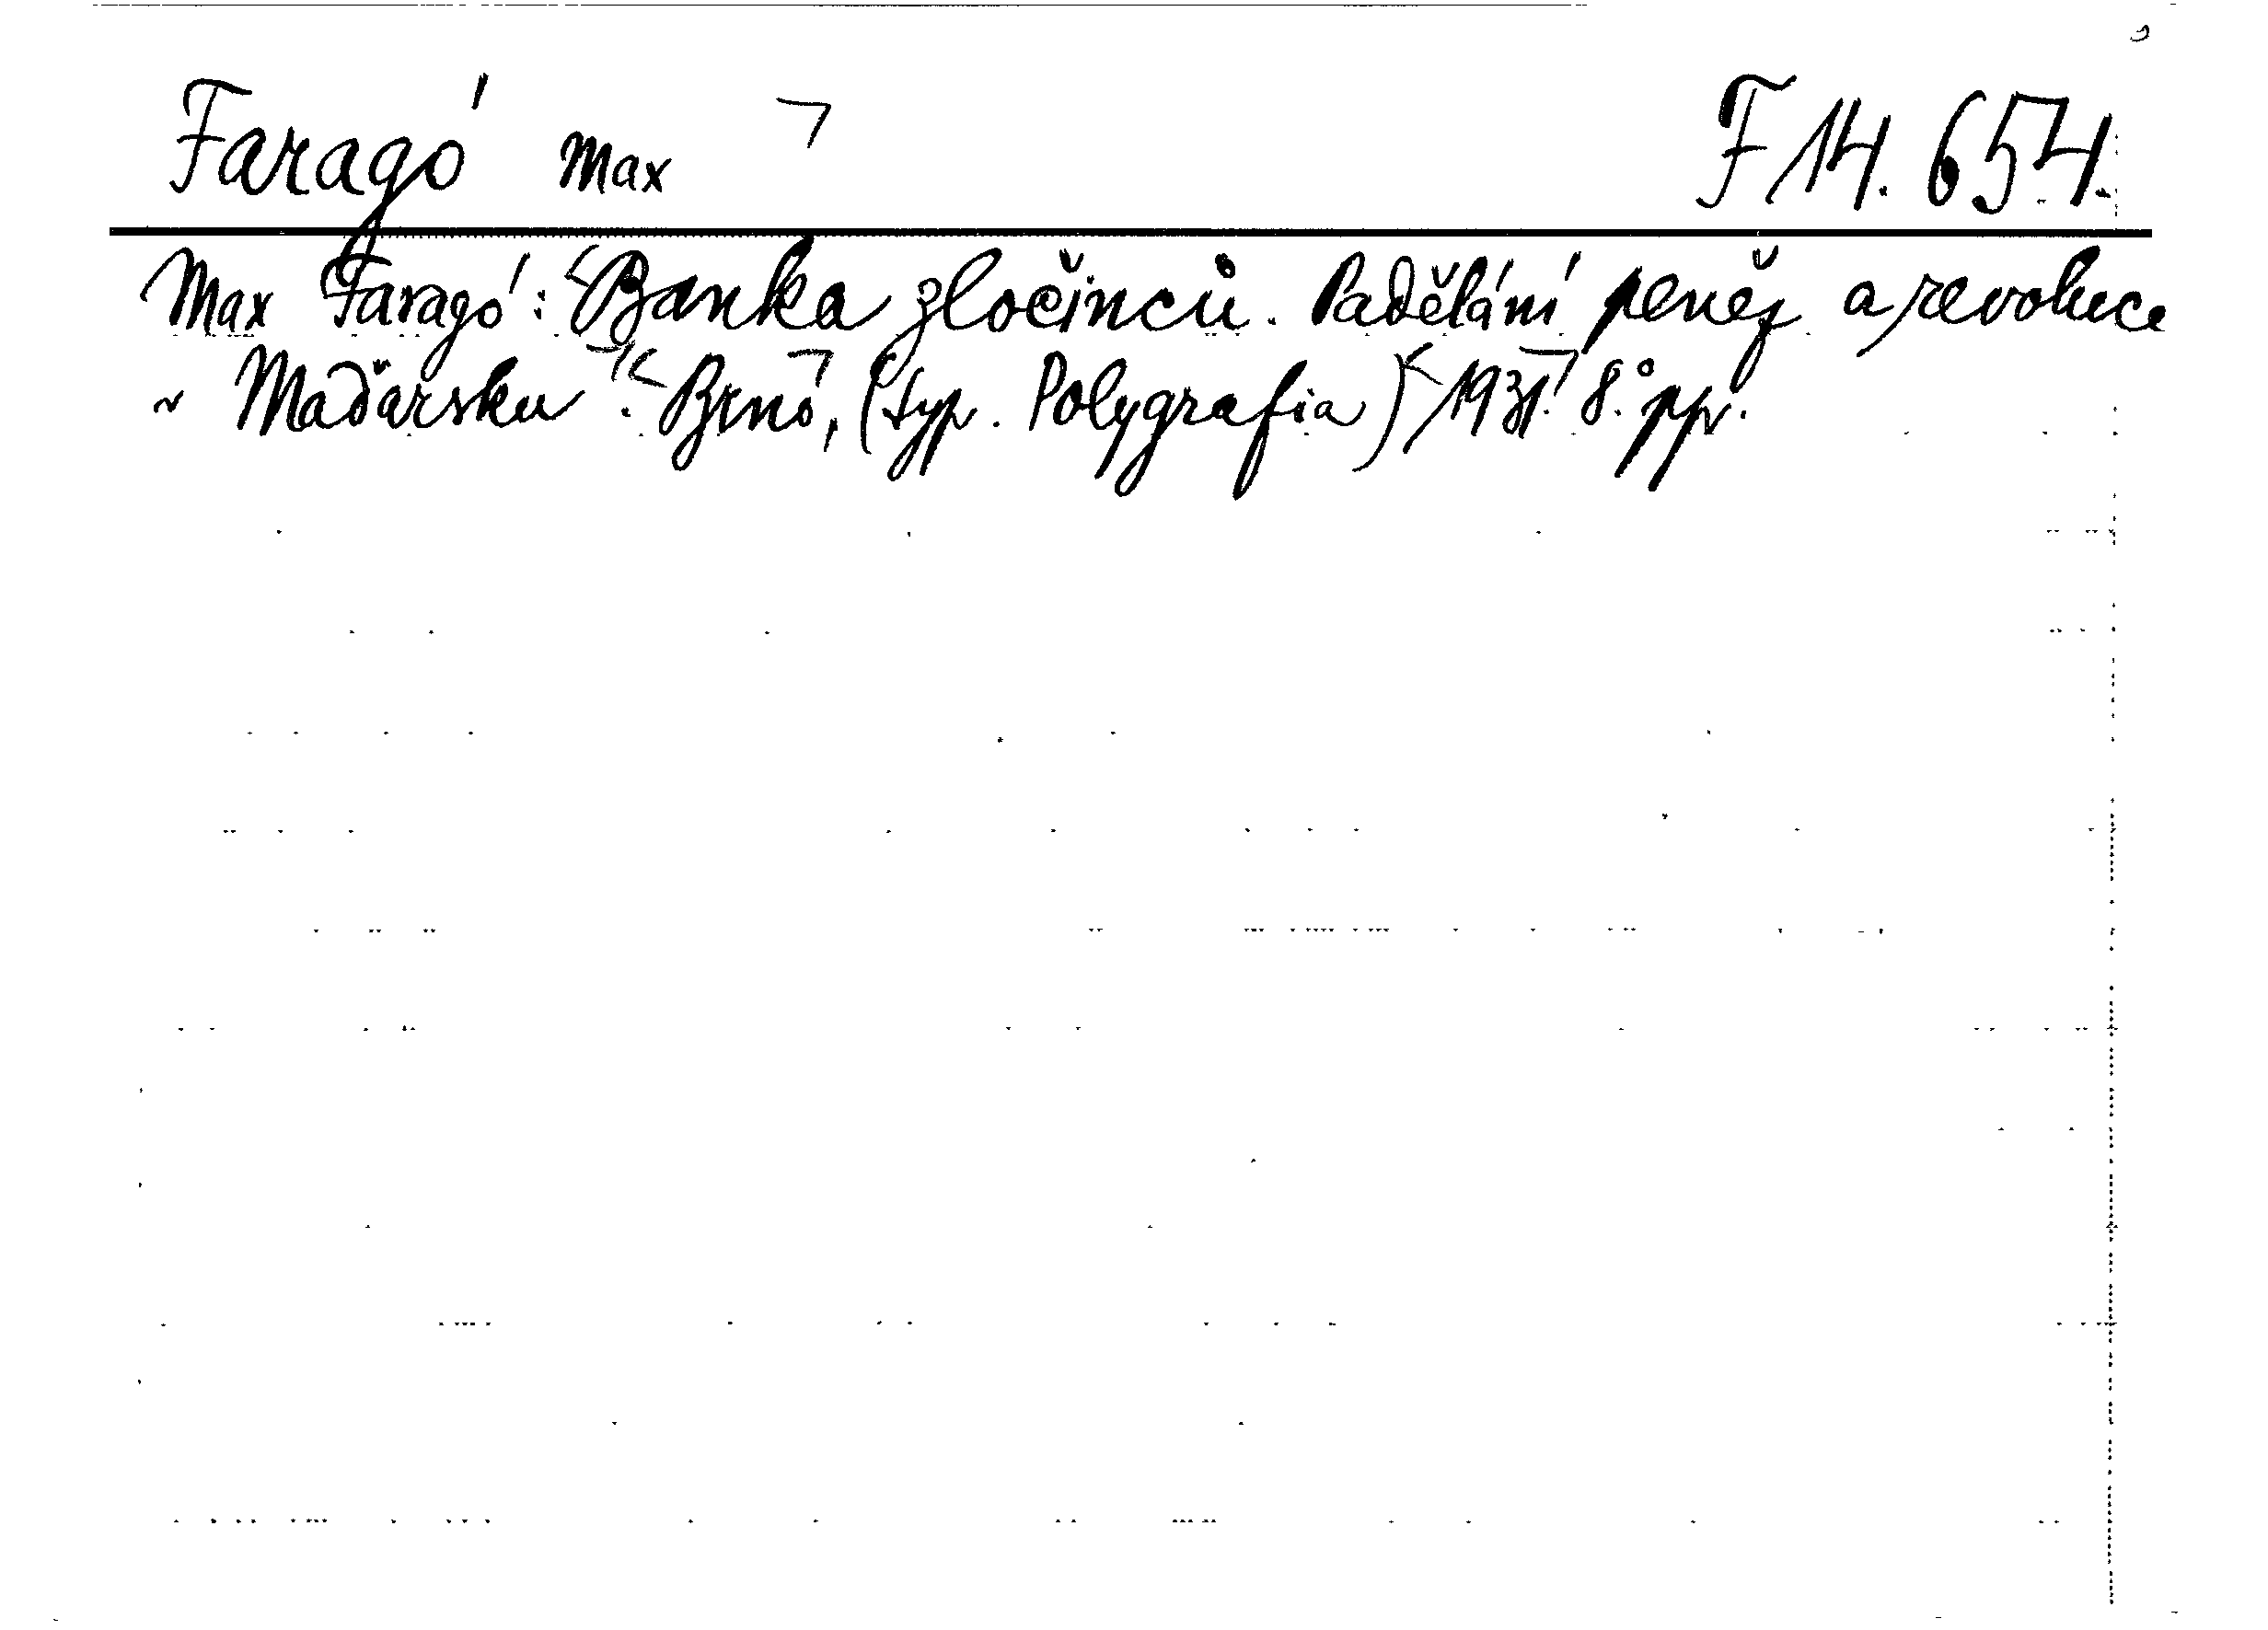 Faragó Max F 14.654.
Max Faragó: Banka zločinců. Padělání peněz a revoluce
v Maďarsku. Brno, (typ. Polygrafia) 1931. 8° pp.